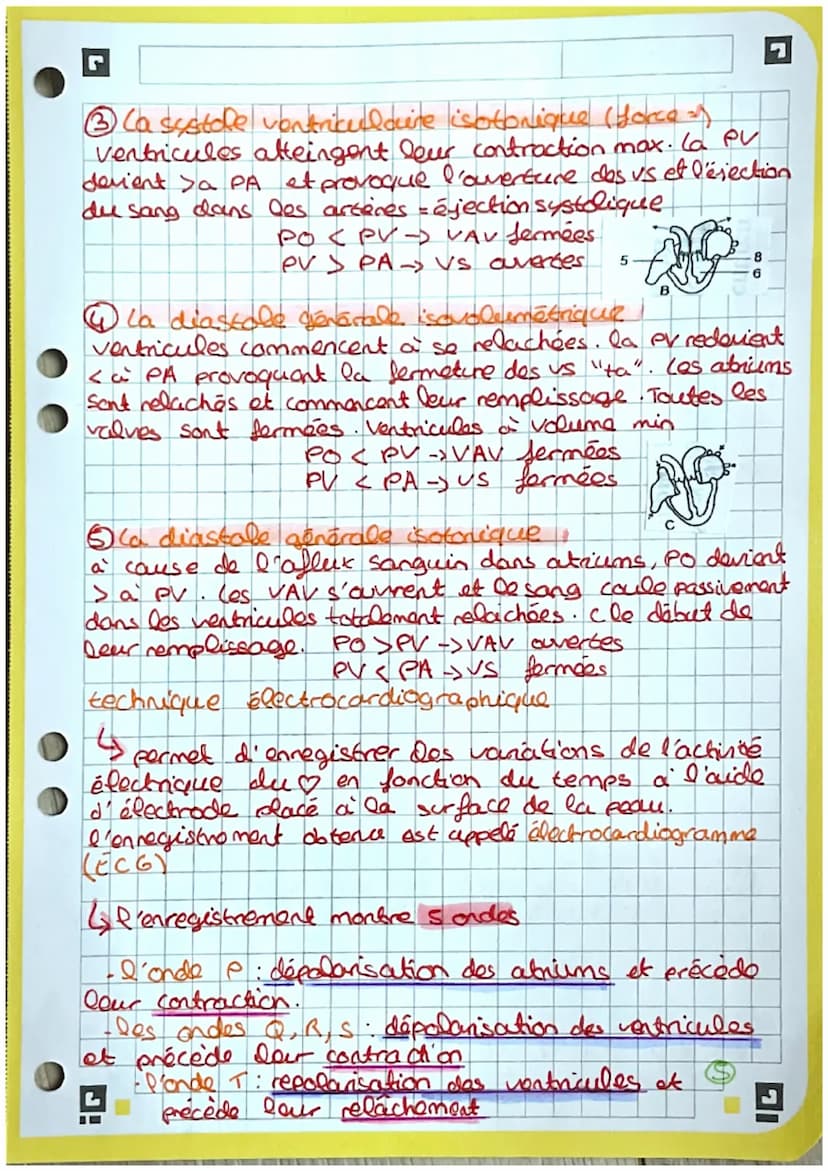 ③ La systole ventriculaire isotonique (force =)
ventricules atteingent leur contraction max. La PV
devient > a PA et provoque l'ouverture des VS et l'éjection
du sang dans les artères = éjection systolique
PO < PV -> VAV fermées
PV > PA -> VS ouvertes
5 8
6
B
④ La diastole générale isovolumétrique
ventricules commencent à se relachées. la PV redevient
< à PA provoquant la fermeture des VS "ta". Les atriums
sont relachés et commencent leur remplissage. Toutes les
valves sont fermées. Ventricules à volume min
PO < PV -> VAV fermées
PV < PA -> VS fermées
C
⑤ La diastole générale isotonique
à cause de l'afflux sanguin dans atriums, PO devient
> à PV. Les VAV s'ouvrent et le sang coule passivement
dans les ventricules totalement relachées. C le début de
leur remplissage. PO > PV -> VAV ouvertes
PV < PA -> VS fermées
technique électrocardiographique
↳ permet d'enregistrer les variations de l'activité
électrique du ♡ en fonction du temps à l'aide
d'électrode placé à la surface de la peau.
l'enregistrement obtenu est appelé électrocardiogramme
(ECG)
↳ l'enregistrement montre 5 ondes
- l'onde P : dépolarisation des atriums et précède
leur contraction.
- les ondes Q, R, S : dépolarisation des ventricules
et précède leur contraction
- l'onde T : repolarisation des ventricules et
précède leur relâchement
⑤